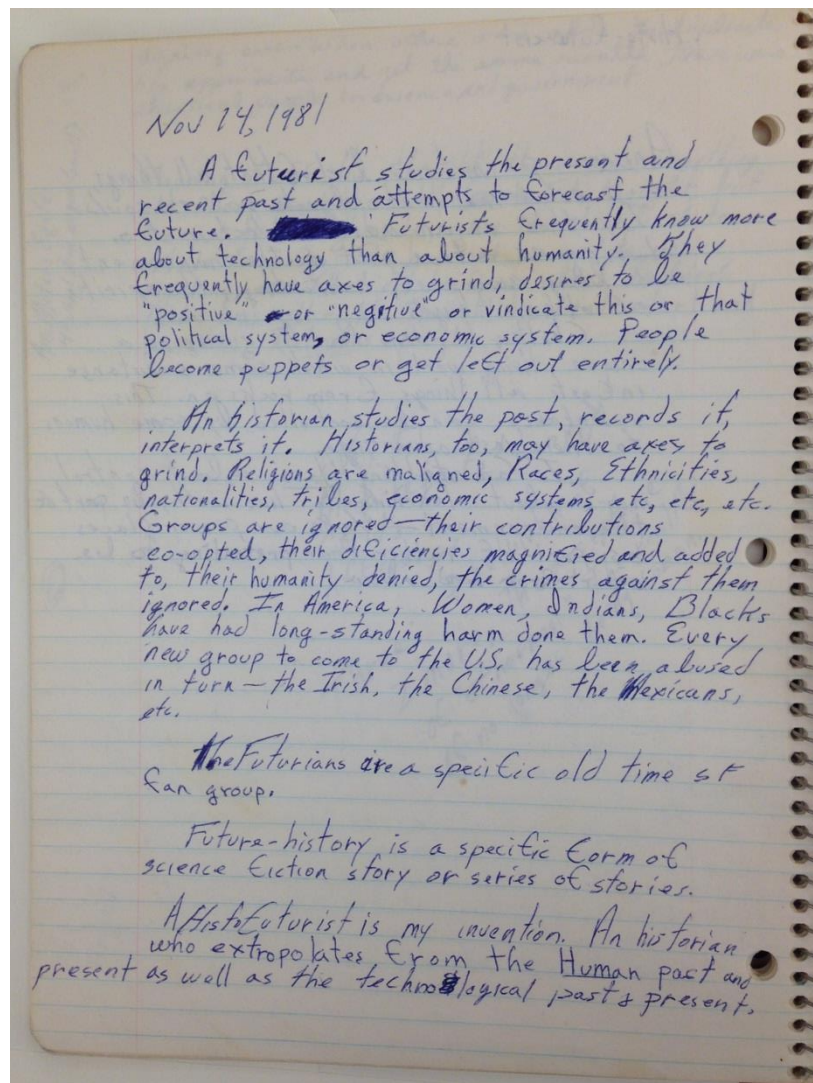 Nov 14, 1981
A futurist studies the present and
recent past and attempts to forecast the
future. Futurists frequently know more
about technology than about humanity. They
frequently have axes to grind, desires to be
"positive" or "negitive" or vindicate this or that
political system, or economic system. People
become puppets or get left out entirely.
An historian studies the past, records it,
interprets it. Historians, too, may have axes to
grind. Religions are maligned, Races, Ethnicities,
nationalities, tribes, economic systems etc, etc, etc.
Groups are ignored—their contributions
co-opted, their deficiencies magnified and added
to, their humanity denied, the crimes against them
ignored. In America, Women, Indians, Blacks
have had long-standing harm done them. Every
new group to come to the U.S. has been abused
in turn—the Irish, the Chinese, the Mexicans,
etc.
The Futurians are a specific old time SF
fan group.
Future-history is a specific form of
science fiction story or series of stories.
A HistoFuturist is my invention. An historian
who extropolates from the Human past and
present as well as the technological past & present.